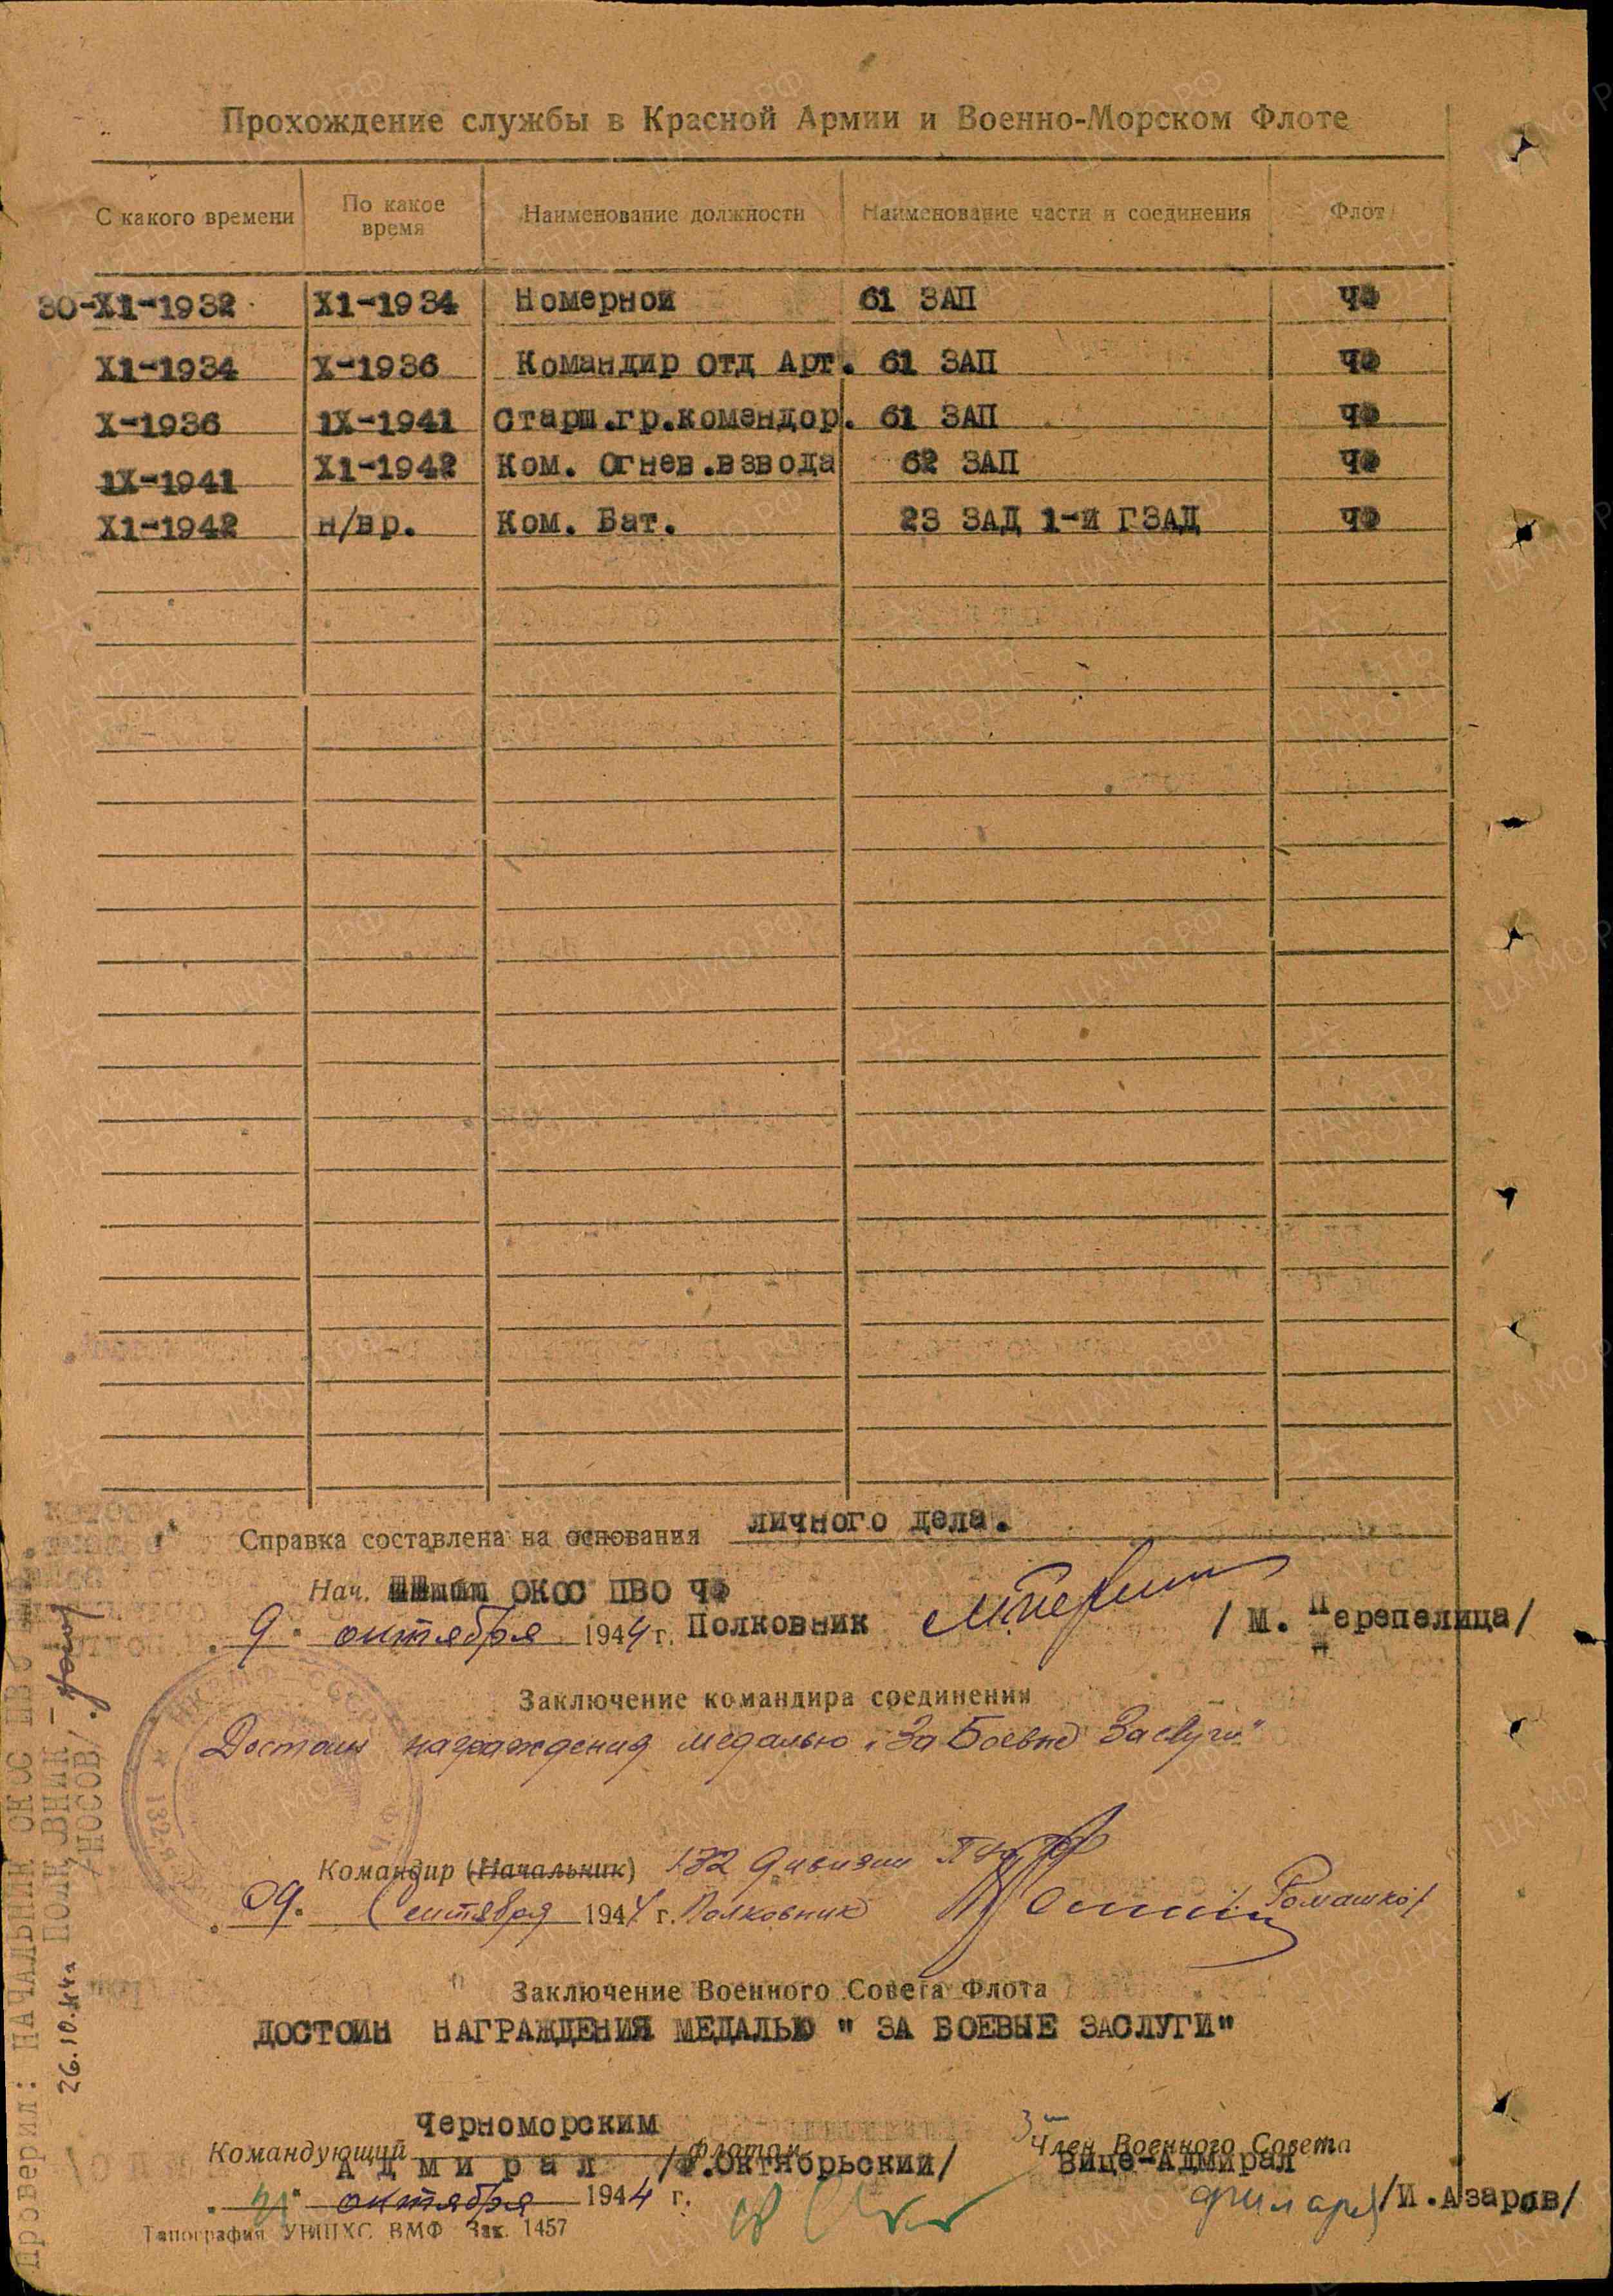 Прохождение службы в Красной Армии и Военно-Морском Флоте
С какого времени По какое время Наименование должности Наименование части и соединения Флот
30-X1-1932 X1-1934 Номерной 61 ЗАП ЧФ
X1-1934 X-1936 Командир отд Арт. 61 ЗАП ЧФ
X-1936 1X-1941 Старш.гр.комендор. 61 ЗАП ЧФ
1X-1941 X1-1942 Ком. Огнев.взвода 62 ЗАП ЧФ
X1-1942 н/вр. Ком. Бат. 23 ЗАД 1-й ГЗАД ЧФ
Справка составлена на основания личного дела.
Нач. ОКОС ПВО ЧФ
9. октября 1944 г. Полковник /М. Перепелица/
Заключение командира соединения
Достоин награждения медалью "За Боевые Заслуги"
Командир (Начальник) 132 дивизии
09. Сентября 1944 г. Полковник /Ромашко/
Заключение Военного Совета Флота
ДОСТОИН НАГРАЖДЕНИЯ МЕДАЛЬЮ " ЗА БОЕВЫЕ ЗАСЛУГИ"
Черноморским
Командующий флотом Член Военного Совета
Адмирал /Ф.Октябрьский/ Вице-Адмирал
октября 1944 г. /И.Азаров/
Типография УВМИ ВМФ Зак. 1457
Проверил: НАЧАЛЬНИК ОКОС ПВО
ПОЛКОВНИК -
/НОСОВ/.
26.10.44г
ПАМЯТЬ НАРОДА
ЦАМО РФ